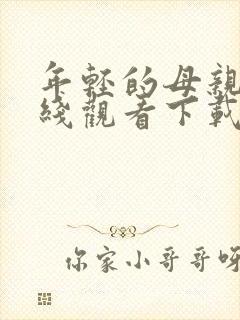 年轻的母親
綫觀看下載
你家小哥哥呀